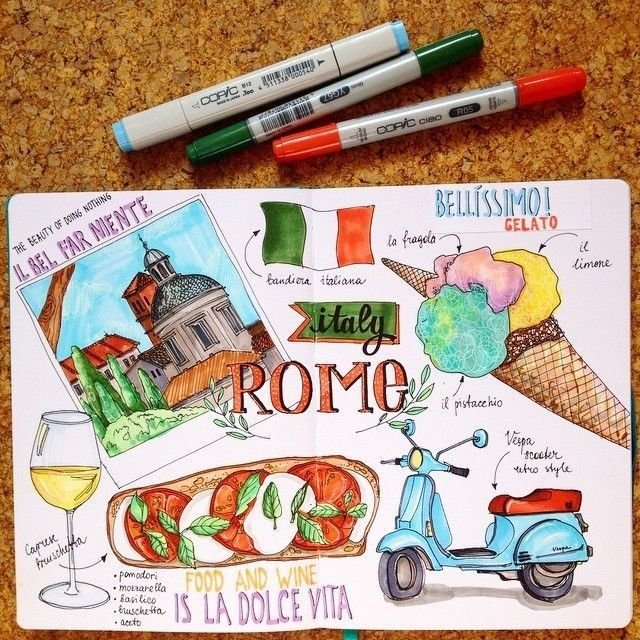 COPIC B12
.Too
4 511338 000540
YG67
Moss
COPIC ciao R05
THE BEAUTY OF DOING NOTHING
IL BEL FAR NIENTE
bandiera italiana
BELLÍSSIMO!
GELATO
la fragola
il
limone
italy
ROME
il pistacchio
Vespa
scooter
retro style
Vespa
Caprese
bruschetta
• pomodori
• mozzarella
• basilico
• bruschetta
• aceto
FOOD AND WINE
IS LA DOLCE VITA